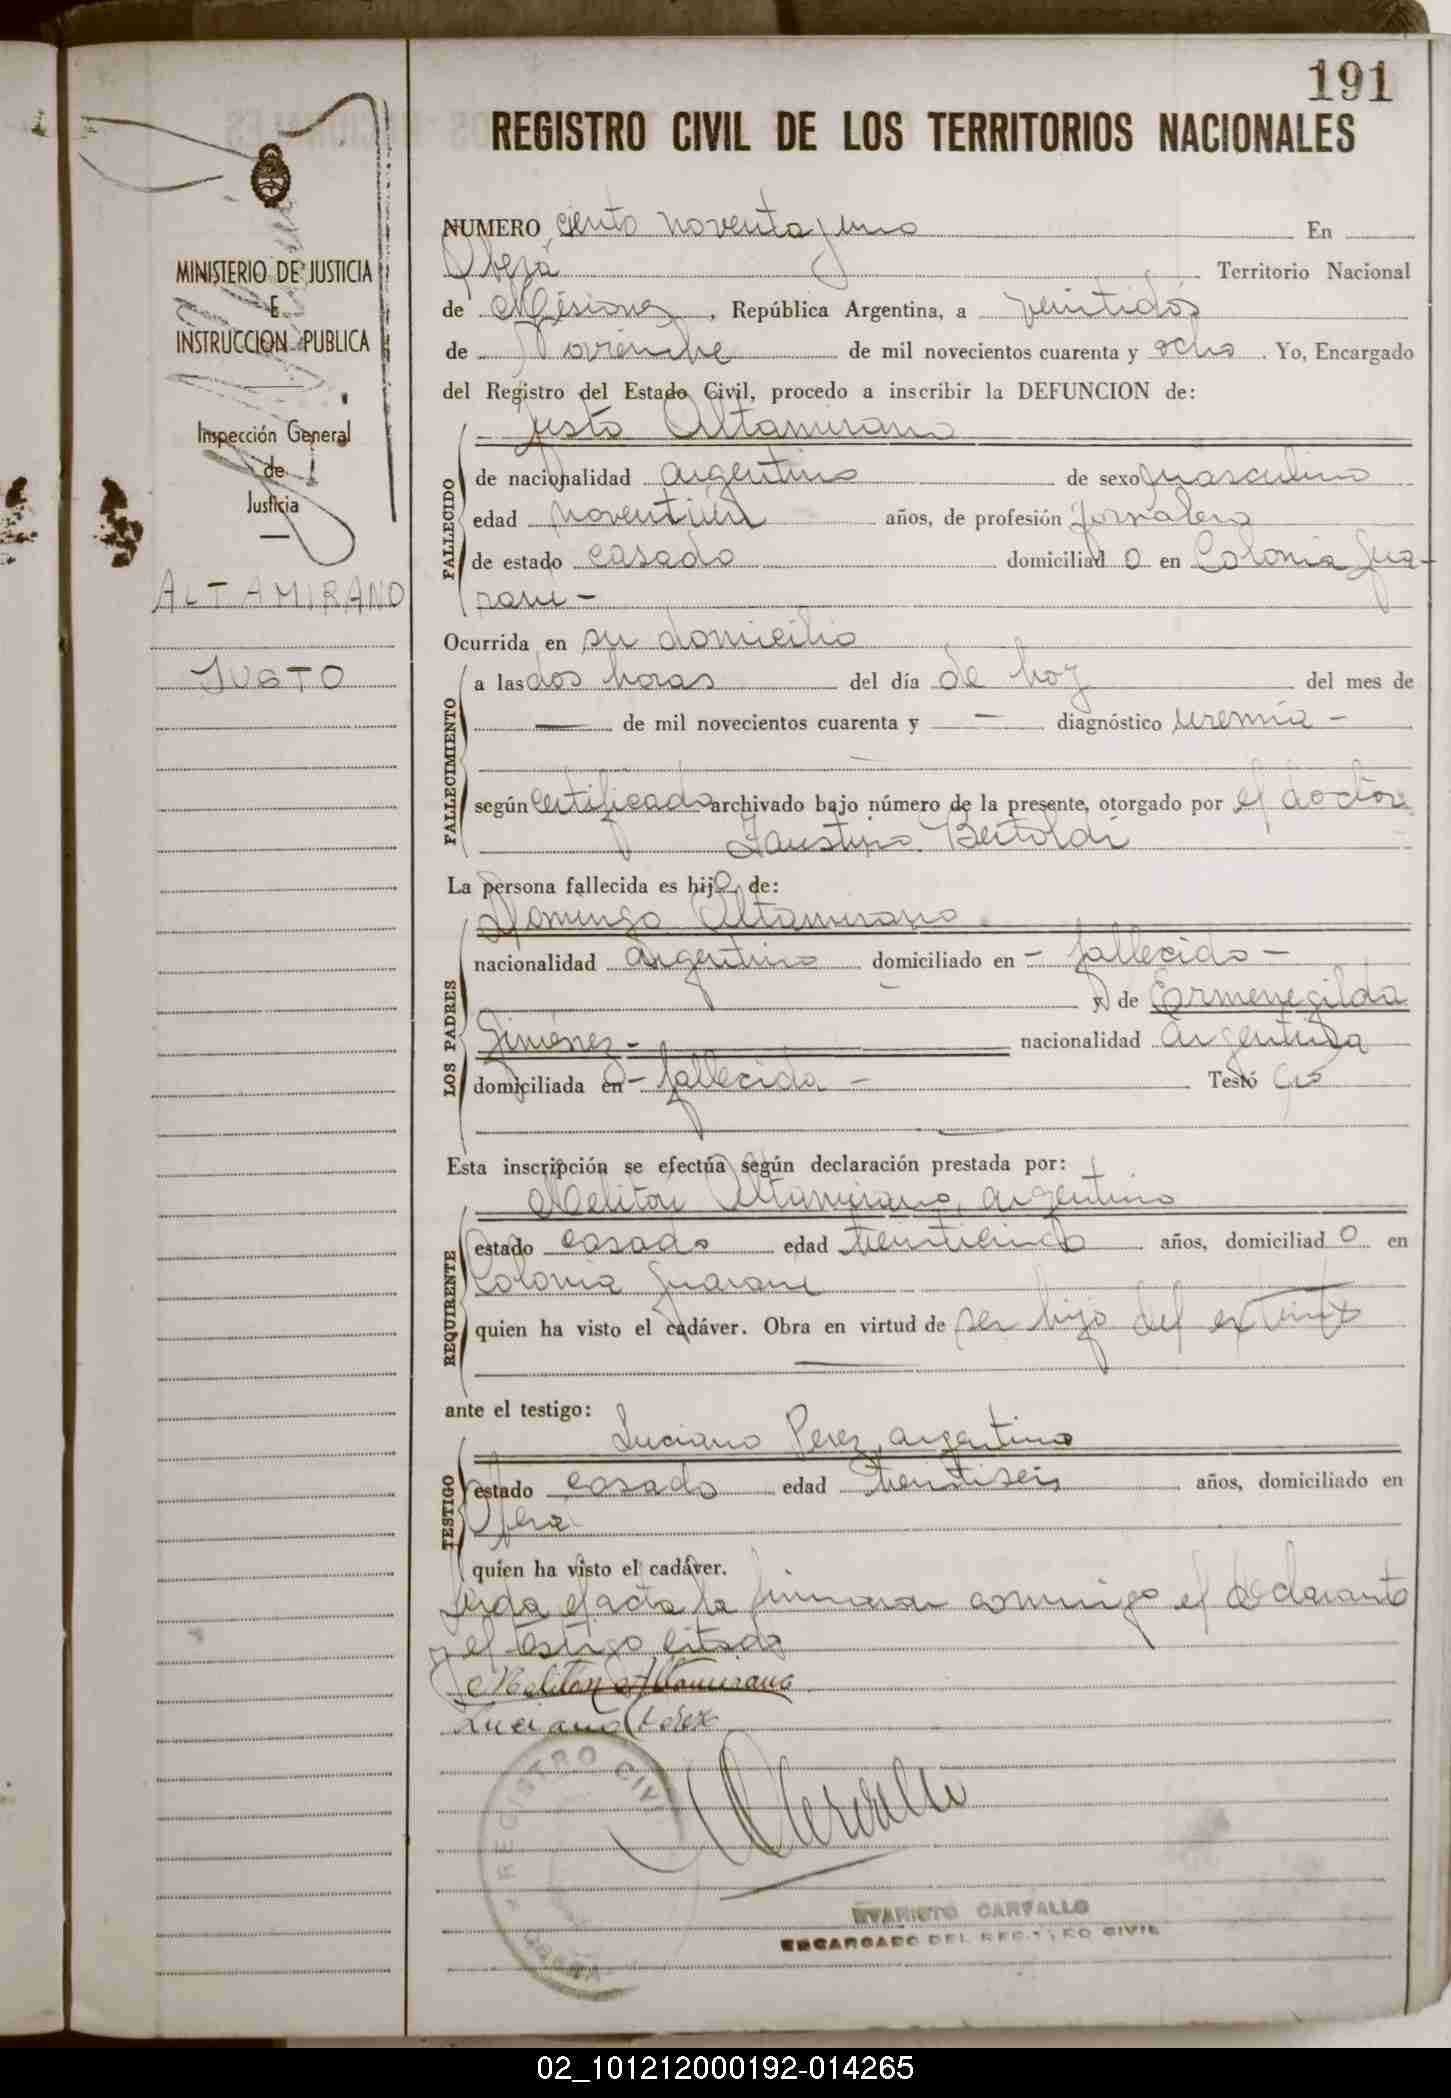 191
REGISTRO CIVIL DE LOS TERRITORIOS NACIONALES
MINISTERIO DE JUSTICIA
E
INSTRUCCION PUBLICA
Inspección General
de
Justicia
ALTAMIRANO
JUSTO
NUMERO ciento noventa y uno En
Oberá Territorio Nacional
de Misiones, República Argentina, a veintidós
de Noviembre de mil novecientos cuarenta y ocho. Yo, Encargado
del Registro del Estado Civil, procedo a inscribir la DEFUNCION de:
Justo Altamirano
FALLECIDO
de nacionalidad argentino de sexo masculino
edad años, de profesión jornalero
de estado casado domiciliad o en Colonia Gua-
rani -
Ocurrida en su domicilio
FALLECIMIENTO
a las dos horas del día de hoy del mes de
— de mil novecientos cuarenta y — diagnóstico uremia -
según certificado archivado bajo número de la presente, otorgado por el doctor
Faustino Bertoldi
La persona fallecida es hijo de:
LOS PADRES
Domingo Altamirano
nacionalidad argentino domiciliado en - fallecido -
y de Ermenegilda
Giménez - nacionalidad argentina
domiciliada en - fallecida - Testó
Esta inscripción se efectúa según declaración prestada por:
REQUIRENTE
Meliton Altamirano, argentino
estado casado edad años, domiciliad o en
Colonia Guarani
quien ha visto el cadáver. Obra en virtud de ser hijo del extinto
ante el testigo:
TESTIGO
Luciano Perez, argentino
estado casado edad treintiseis años, domiciliado en
Oberá
quien ha visto el cadáver.
Leida el acta la firmaron conmigo el declarante
y el testigo citado
Meliton Altamirano
Luciano Perez
REGISTRO CIVIL
EVARISTO CARVALLO
ENCARGADO DEL REGISTRO CIVIL
02_101212000192-014265